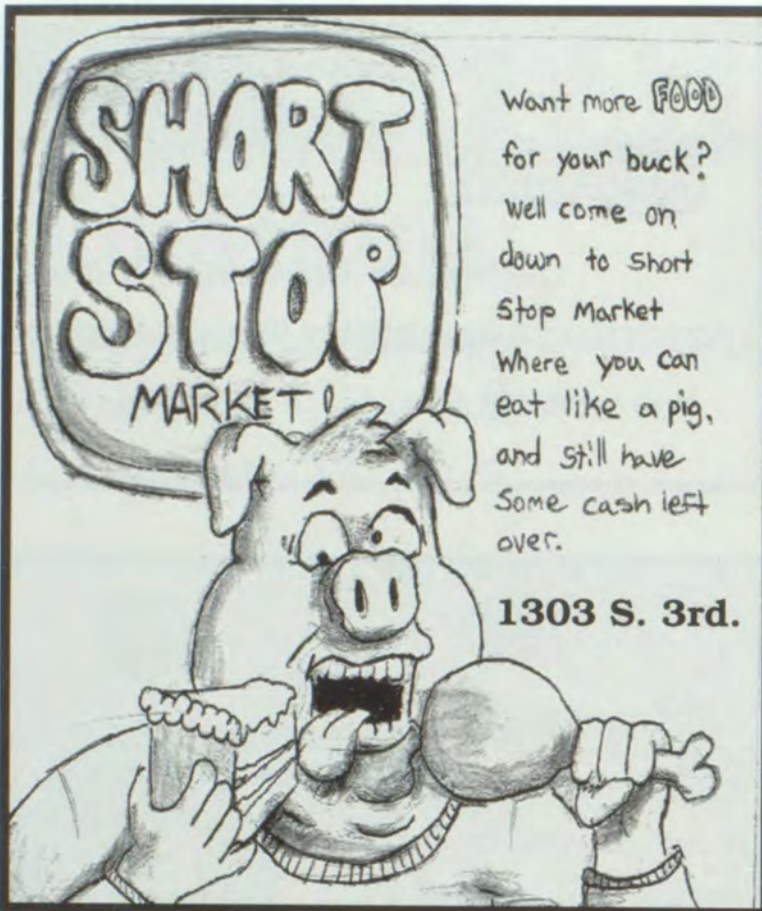 SHORT
STOP
MARKET!
Want more FOOD
for your buck?
Well come on
down to Short
Stop Market
Where you can
eat like a pig,
and still have
Some cash left
over.
1303 S. 3rd.